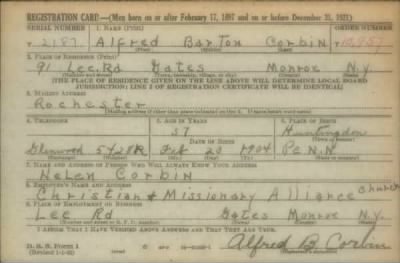 REGISTRATION CARD—(Men born on or after February 17, 1897 and on or before December 31, 1921)
SERIAL NUMBER 1. NAME (Print) ORDER NUMBER
2187 Alfred Barton Corbin
(First) (Middle) (Last)
2. PLACE OF RESIDENCE (Print)
91 Lee Rd Gates Monroe N.Y.
(Number and street) (Town, township, village, or city) (County) (State)
[THE PLACE OF RESIDENCE GIVEN ON THE LINE ABOVE WILL DETERMINE LOCAL BOARD
JURISDICTION; LINE 2 OF REGISTRATION CERTIFICATE WILL BE IDENTICAL]
3. MAILING ADDRESS
Rochester
[Mailing address if other than place indicated on line 2. If same insert word same]
4. TELEPHONE 5. AGE IN YEARS 6. PLACE OF BIRTH
37 Huntingdon
DATE OF BIRTH
Glenwood 5728R Feb 20 1904 Penn
(Exchange) (Number) (Mo.) (Day) (Yr.) (State or country)
7. NAME AND ADDRESS OF PERSON WHO WILL ALWAYS KNOW YOUR ADDRESS
Helen Corbin
8. EMPLOYER'S NAME AND ADDRESS
Christian & Missionary Alliance Church
9. PLACE OF EMPLOYMENT OR BUSINESS
Lee Rd Gates Monroe N.Y.
(Number and street or R. F. D. number) (Town) (County) (State)
I AFFIRM THAT I HAVE VERIFIED ABOVE ANSWERS AND THAT THEY ARE TRUE.
D. S. S. Form 1
Alfred B Corbin